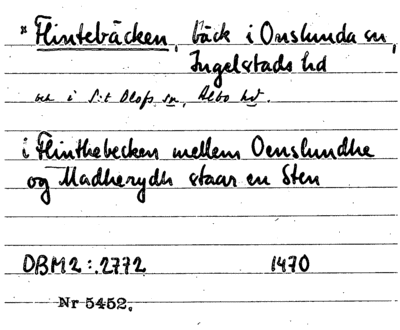 * Flintebäcken, bäck i Onslunda sn,
Ingelstads hd
och i S:t Olofs sn, Albo hd.
i Flinthebecken mellem Oenslundhe
og Madherydh staar en Sten
DBM2:.2772 1470
Nr 5452.